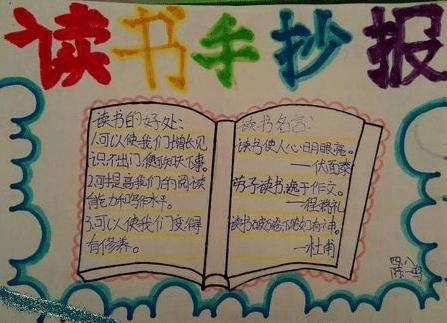 读书手抄报
读书的好处:
1.可以使我们增长见
识不出门便知天下事。
2.可提高我们的阅读
能力和写作水平。
3.可以使我们变得
有修养。
读书名言:
读书使人心明眼亮。
——伏而泰
劳于读书,逸于作文。
——程端礼
读书破万卷,下笔如有神。
——杜甫
四、八